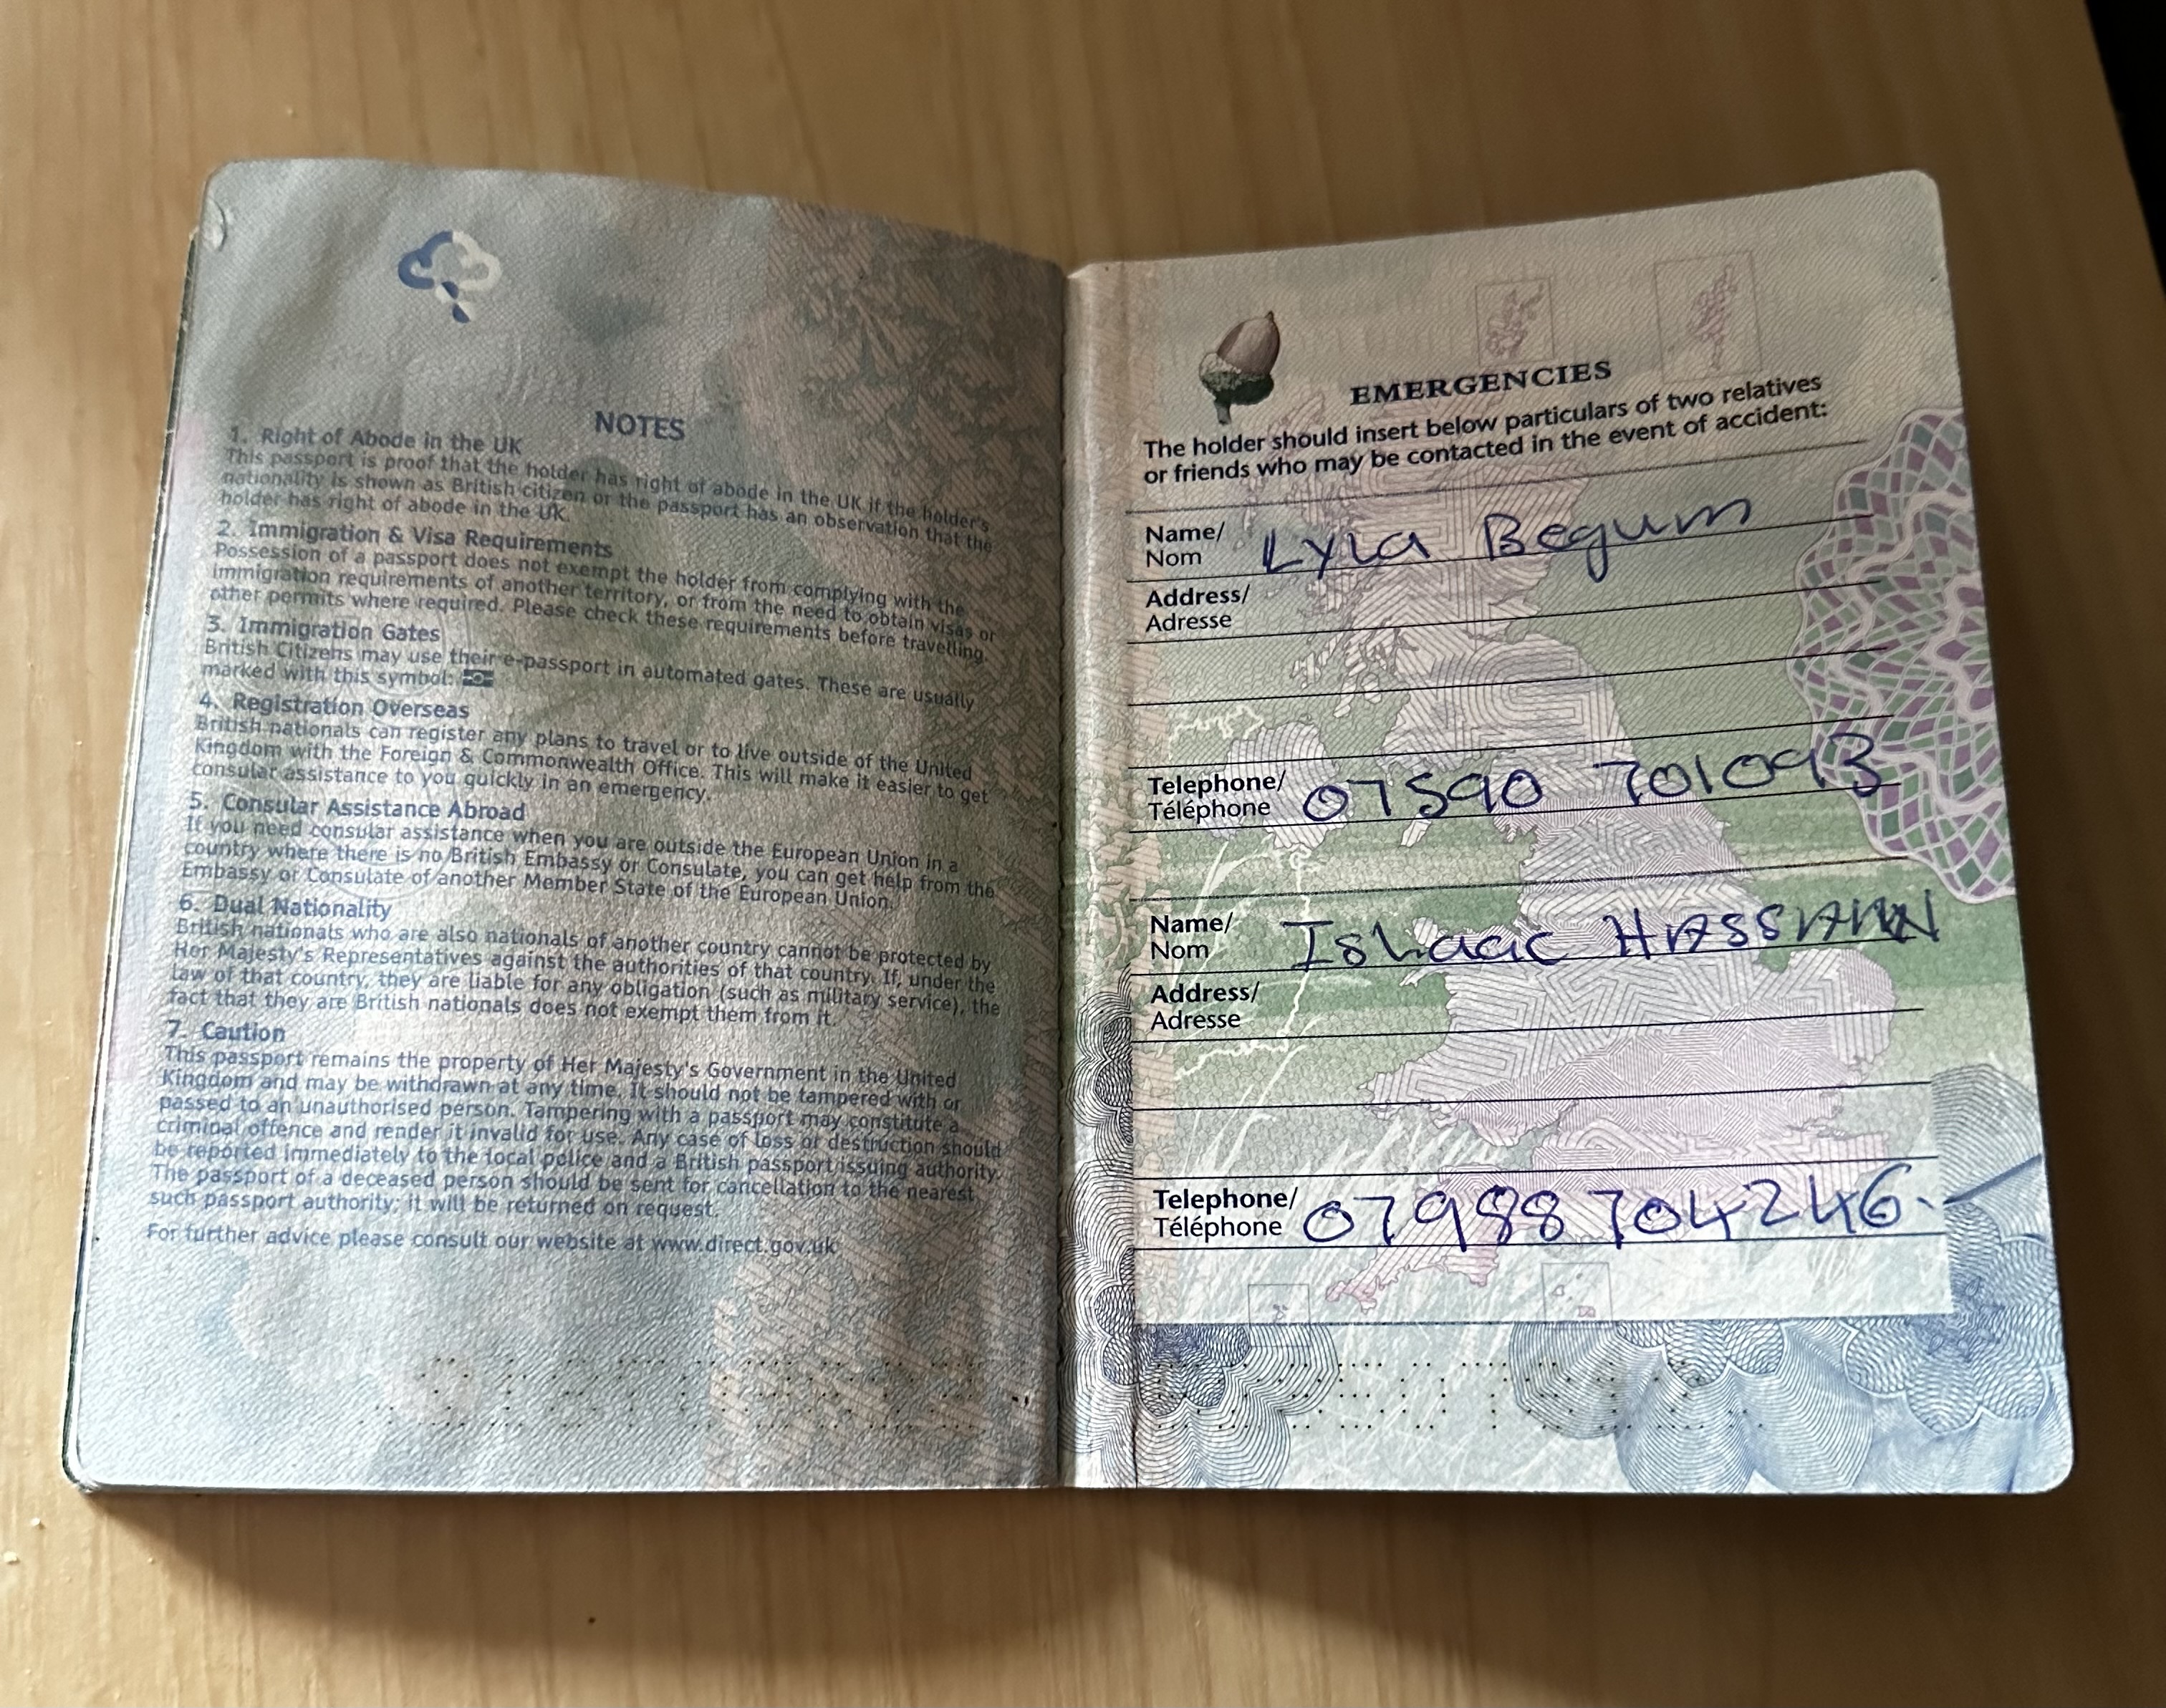 NOTES
1. Right of Abode in the UK
This passport is proof that the holder has right of abode in the UK if the holder's
nationality is shown as British citizen or the passport has an observation that the
holder has right of abode in the UK.
2. Immigration & Visa Requirements
Possession of a passport does not exempt the holder from complying with the
immigration requirements of another territory, or from the need to obtain visas or
other permits where required. Please check these requirements before travelling.
3. Immigration Gates
British Citizens may use their e-passport in automated gates. These are usually
marked with this symbol:
4. Registration Overseas
British nationals can register any plans to travel or to live outside of the United
Kingdom with the Foreign & Commonwealth Office. This will make it easier to get
consular assistance to you quickly in an emergency.
5. Consular Assistance Abroad
If you need consular assistance when you are outside the European Union in a
country where there is no British Embassy or Consulate, you can get help from the
Embassy or Consulate of another Member State of the European Union.
6. Dual Nationality
British nationals who are also nationals of another country cannot be protected by
Her Majesty's Representatives against the authorities of that country. If, under the
law of that country, they are liable for any obligation (such as military service), the
fact that they are British nationals does not exempt them from it.
7. Caution
This passport remains the property of Her Majesty's Government in the United
Kingdom and may be withdrawn at any time. It should not be tampered with or
passed to an unauthorised person. Tampering with a passport may constitute a
criminal offence and render it invalid for use. Any case of loss or destruction should
be reported immediately to the local police and a British passport issuing authority.
The passport of a deceased person should be sent for cancellation to the nearest
such passport authority; it will be returned on request.
For further advice please consult our website at www.direct.gov.uk
EMERGENCIES
The holder should insert below particulars of two relatives
or friends who may be contacted in the event of accident:
Name/ Lyla Begum
Nom
Address/
Adresse
Telephone/ 07590 701093
Téléphone
Name/ Ishaac
Nom
Address/
Adresse
Telephone/ 07988 704246.
Téléphone